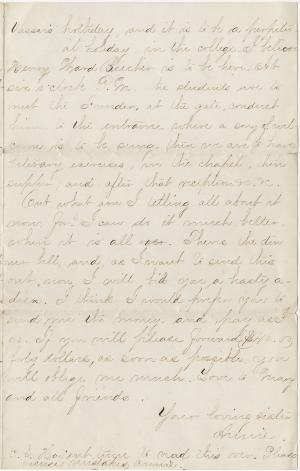 Vassar's holiday, and it is to be a perpetu-
al holiday, in the college. I believe
Henry Ward Beecher is to be here. At
six o'clock P.M. the students are to
meet the Founder, at the gate, conduct
him to the entrance where a song of wel
come is to be sung, then we are to have
literary exercises, in the chapel, then
supper, and after that reception &c. &c.
But what am I telling all about it
now for? I can do it much better
when it is all over. There's the din
ner bell, and, as I want to send this
out, now, I will bid you a hasty a-
dieu. I think I would prefer you to
send me the money, and pay as I
go. If you will please forward
dollars, as soon as possible, you
will oblige me much. Love to Mary
and all friends.
Your loving sister
Annie.
P.S. Haven't time to read this over. Please
excuse mistakes, Annie.